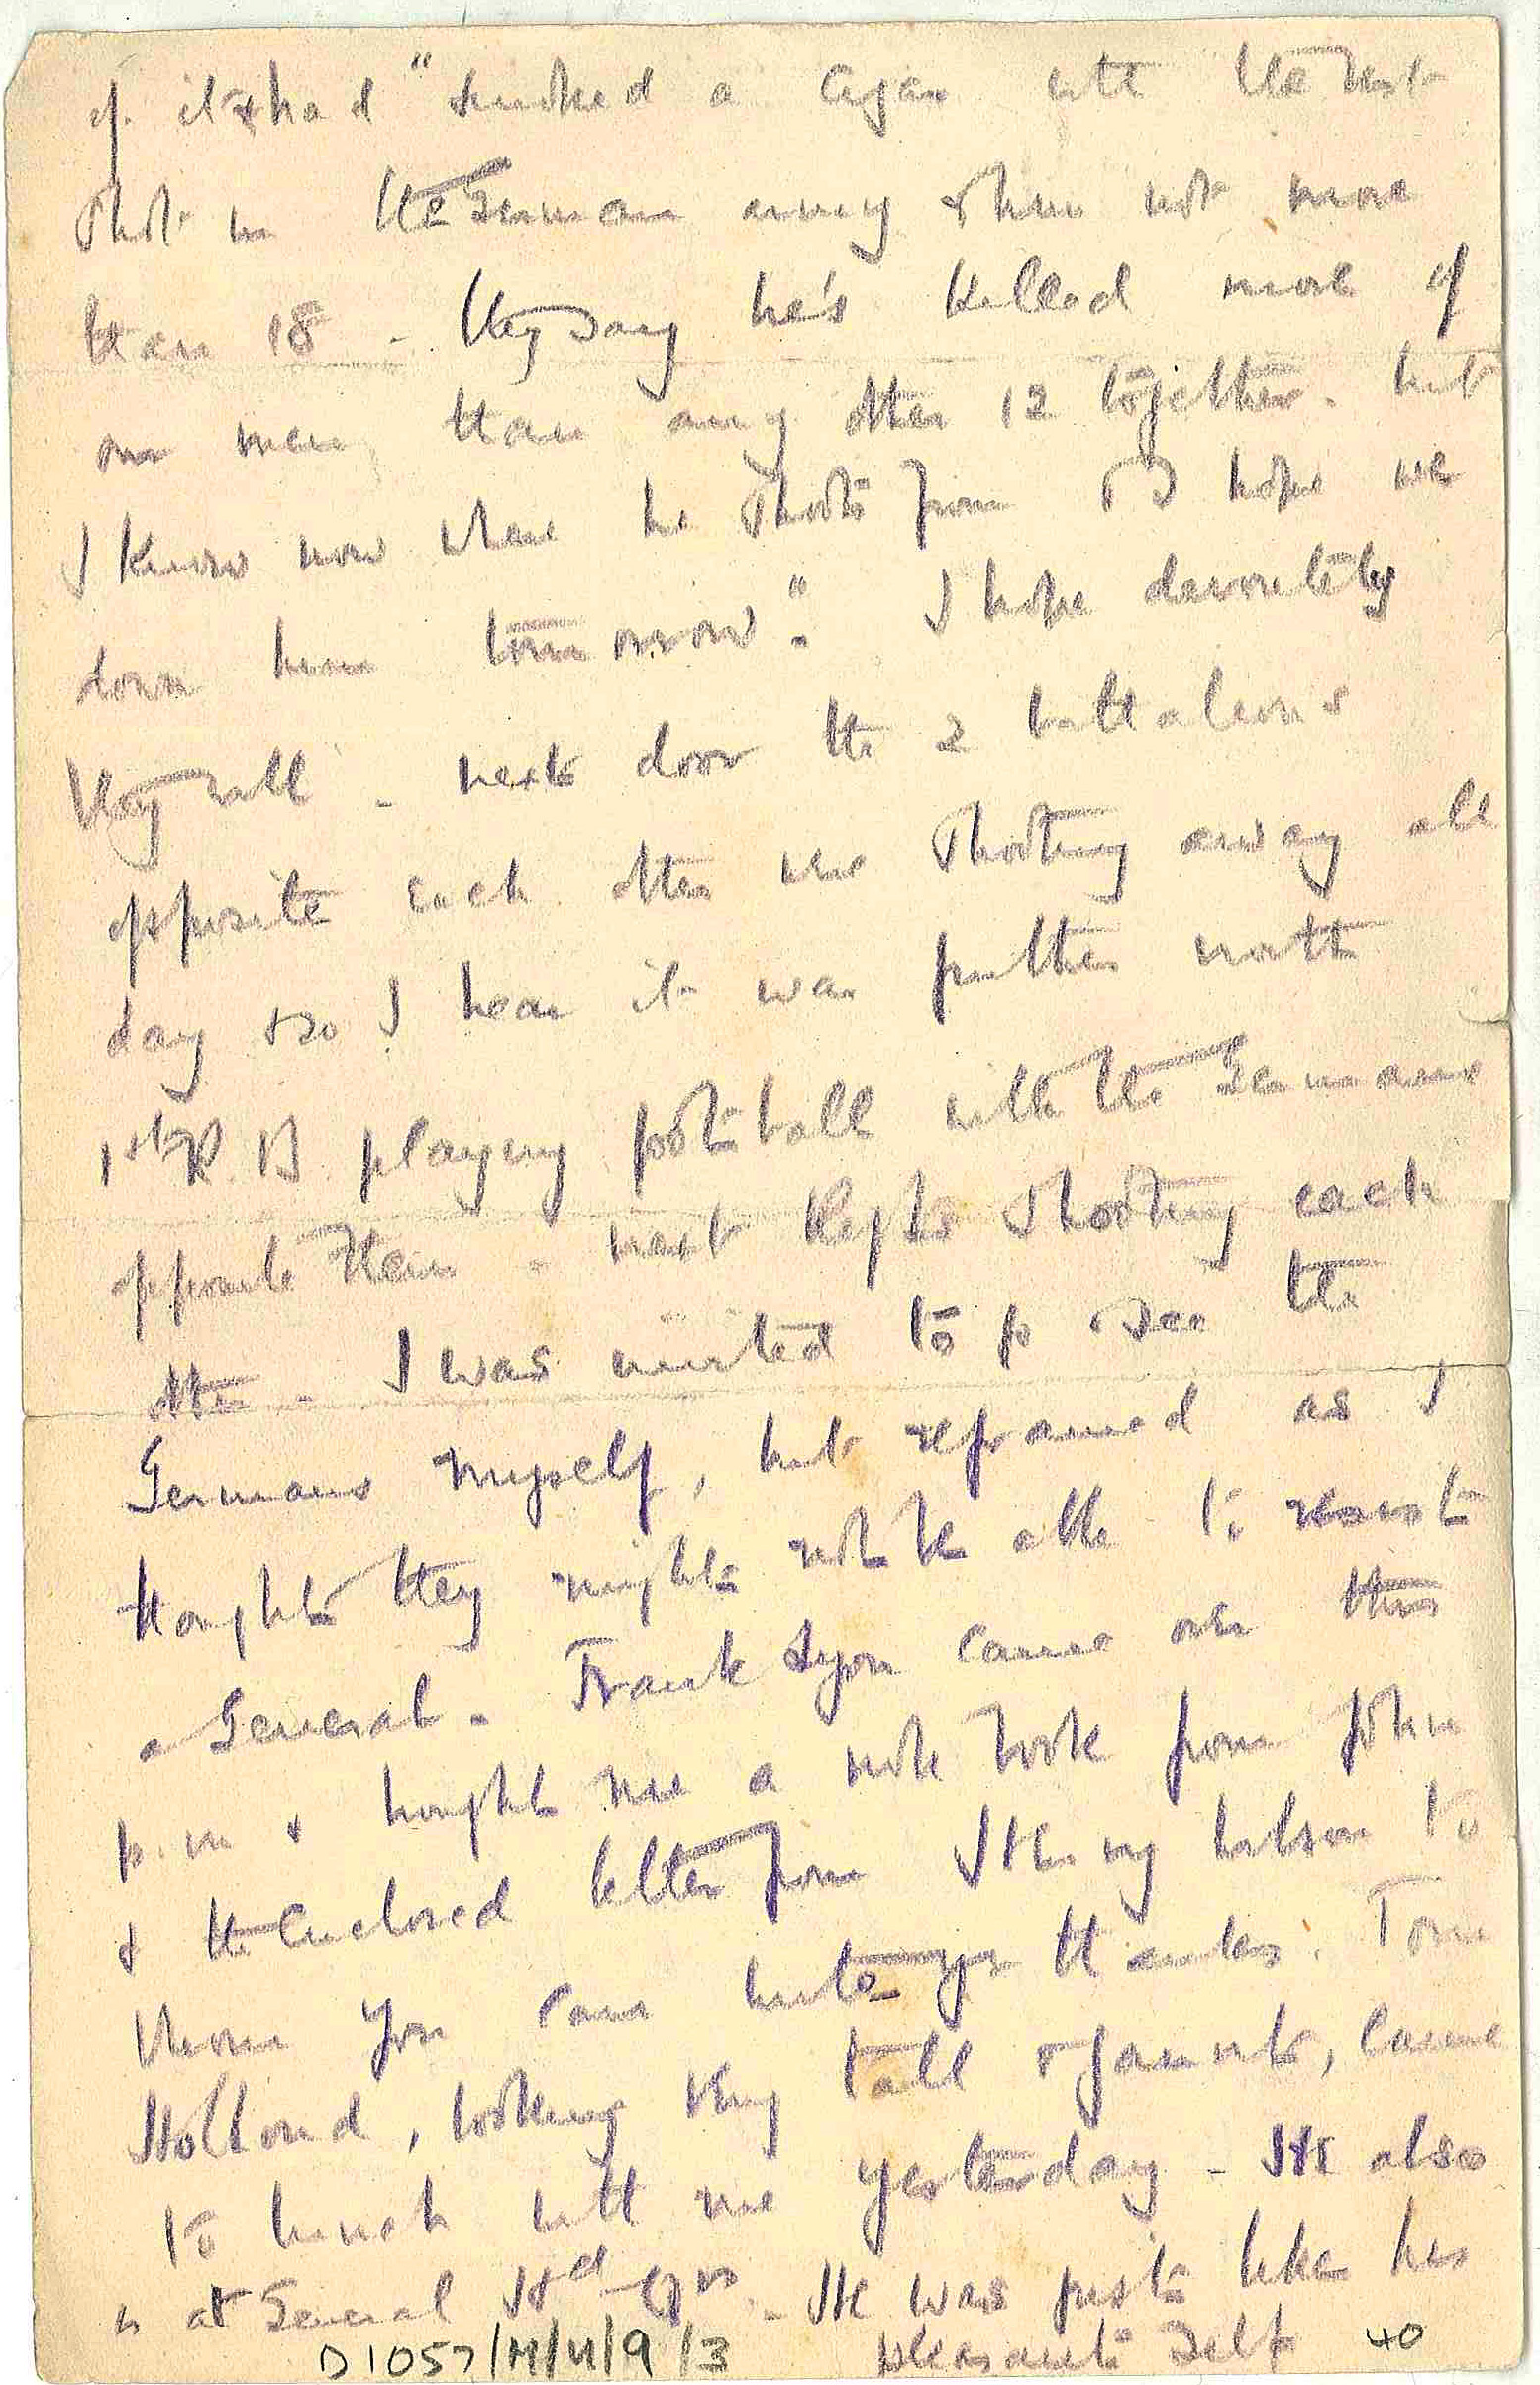 of it & had "smoked a cigar with the best
shot in the German army, then not more
than 18 - they say he's killed more of
our men than any other 12 together - but
I know now where he shoots from & I hope we
down him tomorrow". I hope devoutely
they will - next door the 2 battalions
opposite each other were shooting away all
day & so I hear it was further north
1st R.B. playing football with the Germans
opposite them - next Regts shooting each
other - I was invited to go & see the
Germans myself, but refrained as I
thought they might not be able to resist
a General - Frank Lyon came over this
p.m & brought me a note book from John
& the enclosed letter from to
whom you can write yr thanks. Tom
Hollond, looking very tall & gaunt, came
to lunch with me yesterday - He also
is at General Hd Qrs. - He was just like his
pleasant self
D1057/M/U/9/3
40